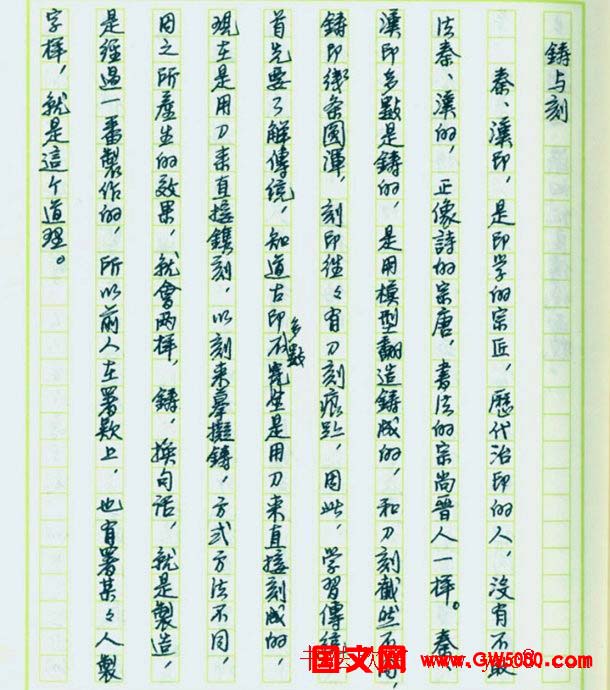 鑄与刻
秦、漢印，是印学的宗匠，歷代治印的人，沒有不取
法秦、漢的，正像詩的宗唐，書法的宗尚晉人一样。秦
漢印多數是鑄的，是用模型翻造鑄成的，和刀刻截然不同，
鑄印綫条圓渾，刻印往々有刀刻痕跡，因此，学習傳統
首先要了解傳統，知道古印多數不是用刀来直接刻成的，
現在是用刀来直接鐫刻，以刻来摹擬鑄，方式方法不同，
因之所產生的效果，就會两样，鑄，换句话，就是製造，
是經過一番製作的，所以前人在署欵上，也有署某々人製
字样，就是這个道理。
国文网 www.GW5000.com